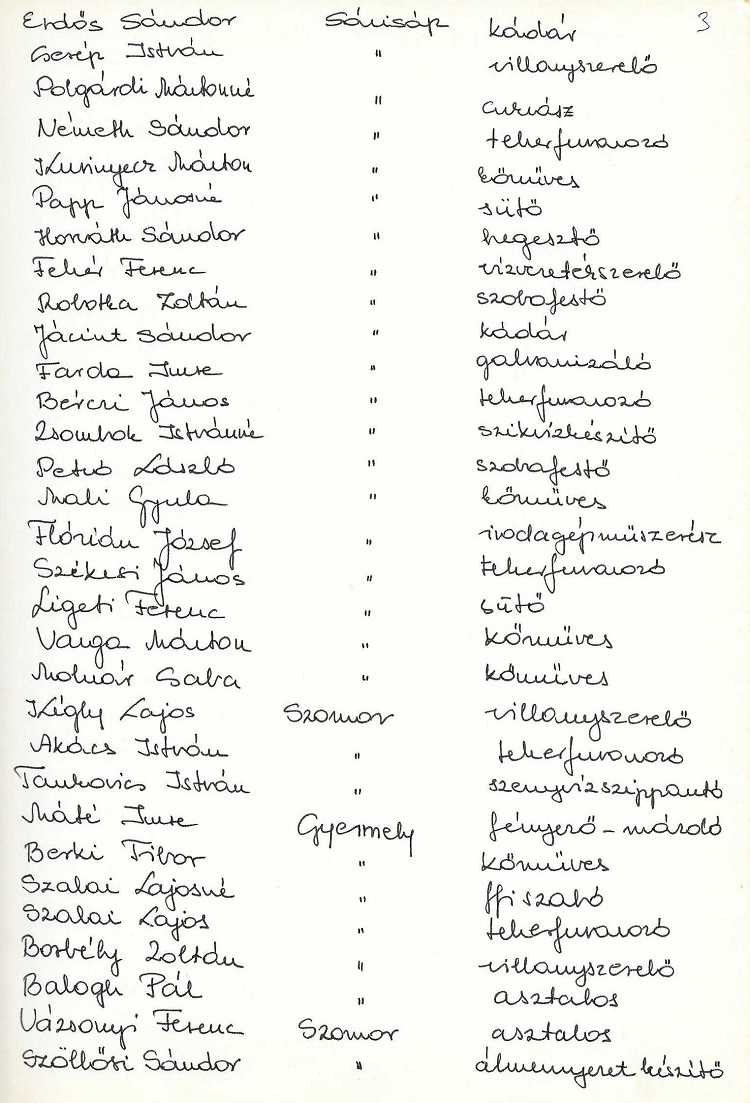 3
Erdős Sándor Sárisáp kádár
Cserép István " villanyszerelő
Polgárdi Mártonné " cukrász
Németh Sándor " teherfuvarozó
Kurinyecz Márton " kőműves
Papp Jánosné " sütő
Horváth Sándor " hegesztő
Fehér Ferenc " vízvezetékszerelő
Robotka Zoltán " szobafestő
Jácint Sándor " kádár
Farda Imre " galvanizáló
Bérczi János " teherfuvarozó
Zsombok Istvánné " szikvízkészítő
Petró László " szobafestő
Mali Gyula " kőműves
Flórián József " irodagépműszerész
Székesi János " teherfuvarozó
Ligeti Ferenc " sütő
Varga Márton " kőműves
Molnár Csaba " kőműves
Kégly Lajos Szomor villanyszerelő
Akács István " teherfuvarozó
Tankovics István " szennyvízszippantó
Máté Imre Gyermely fényező-mázoló
Berki Tibor " kőműves
Szalai Lajosné " ffi szabó
Szalai Lajos " teherfuvarozó
Borbély Zoltán " villanyszerelő
Balogh Pál " asztalos
Vázsonyi Ferenc Szomor asztalos
Szöllősi Sándor " álmennyezet készítő